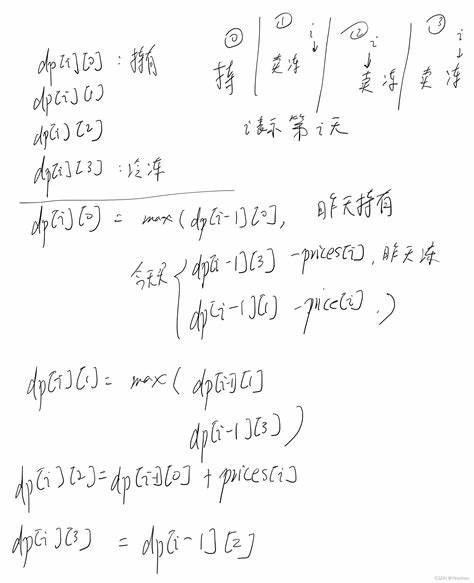 dp[i][0] : 持有
dp[i][1]
dp[i][2]
dp[i][3] : 冷冻
⓪ ① i ② i ③ i
持 卖冻 卖冻 卖冻
i表示第i天
dp[i][0] = max(dp[i-1][0], 昨天持有
今天买 { dp[i-1][3] -prices[i], 昨天冻
dp[i-1][1] -price[i] .)
dp[i][1] = max( dp[i-1][1]
dp[i-1][3] )
dp[i][2]=dp[i-1][0] + prices[i]
dp[i][3] = dp[i-1][2]